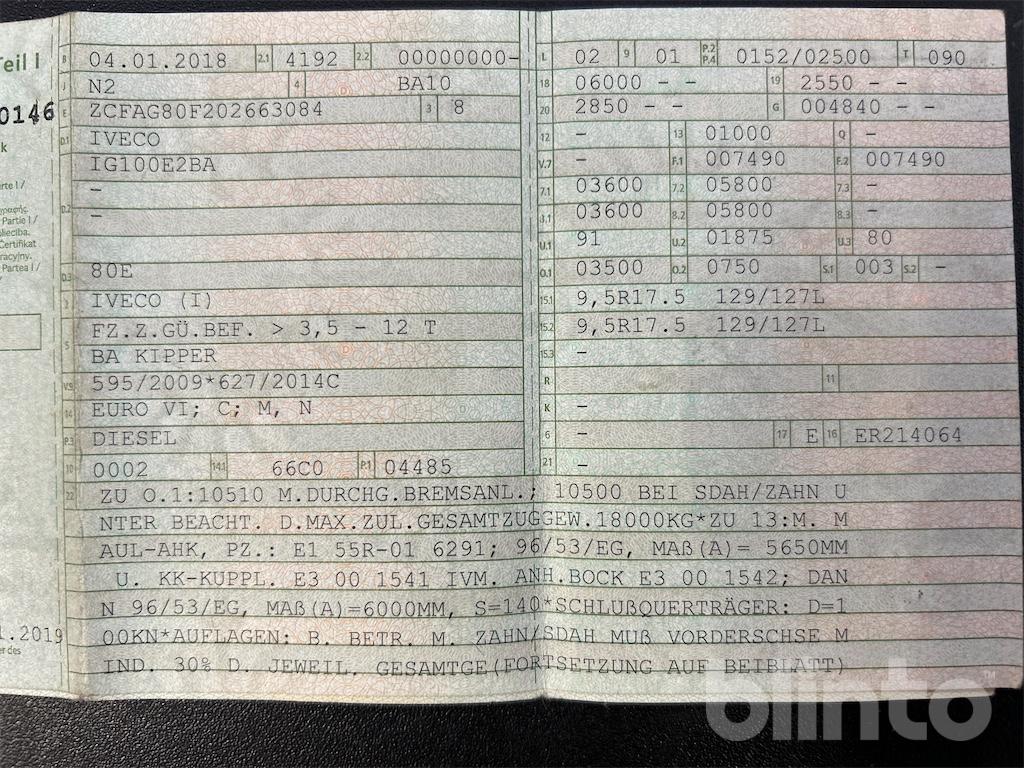 Teil I
0146
k
rte I /
Partie I /
olieciba.
Certifikat
racyjny.
Partea I /
1.2019
er des
B 04.01.2018 2.1 4192 2.2 00000000-
J N2 4 BA10
E ZCFAG80F202663084 3 8
D.1 IVECO
IG100E2BA
-
D.2 -
D.3 80E
2 IVECO (I)
FZ.Z.GÜ.BEF. > 3,5 - 12 T
5 BA KIPPER
V.9 595/2009*627/2014C
14 EURO VI; C; M, N
P.3 DIESEL
10 0002 14.1 66C0 P.1 04485
L 02 9 01 P.2 P.4 0152/02500 T 090
18 06000 - - 19 2550 - -
20 2850 - - G 004840 - -
12 - 13 01000 Q -
V.7 - F.1 007490 F.2 007490
7.1 03600 7.2 05800 7.3 -
8.1 03600 8.2 05800 8.3 -
U.1 91 U.2 01875 U.3 80
O.1 03500 O.2 0750 S.1 003 S.2 -
15.1 9,5R17.5 129/127L
15.2 9,5R17.5 129/127L
15.3 -
R 11
K -
6 - 17 E 16 ER214064
21 -
22 ZU O.1:10510 M.DURCHG.BREMSANL.; 10500 BEI SDAH/ZAHN U
NTER BEACHT. D.MAX.ZUL.GESAMTZUGGEW.18000KG*ZU 13:M. M
AUL-AHK, PZ.: E1 55R-01 6291; 96/53/EG, MAß(A)= 5650MM
U. KK-KUPPL. E3 00 1541 IVM. ANH.BOCK E3 00 1542; DAN
N 96/53/EG, MAß(A)=6000MM, S=140*SCHLUßQUERTRÄGER: D=1
00KN*AUFLAGEN: B. BETR. M. ZAHN/SDAH MUß VORDERSCHSE M
IND. 30% D. JEWEIL. GESAMTGE(FORTSETZUNG AUF BEIBLATT)
blinto